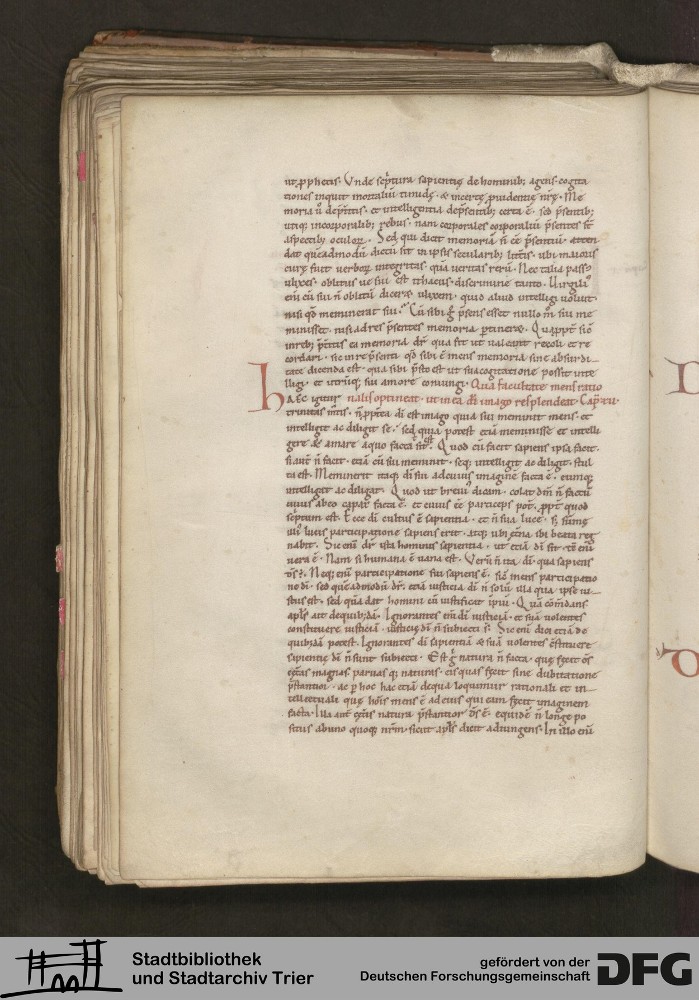 ut ꝓphetis. Unde scͥptura sapientię de hominib; agens. cogita
tiones inquit mortaliū timidę. & incertę ꝓuidentię nr̄ę. Me
moria ū de p̄teritis. et intelligentia de p̄sentib; certa ē. sed p̄sentib;
utiq; incorporalib; rebus. nam corporales corporaliū p̄sentes st̄
aspectib; oculoꝝ. Sed qui dicit memoriā n̄ ēē p̄sentiū. atten
dat quēadmodū dictū sit in ipsis secularib; litt̄is. ubi maioris
curę fuit uerboꝝ integritas. quā ueritas rerū. Nec talia passꝰ
ulixes. oblitus ue sui est ithacus. discrimine tanto. Uirgiliꝰ
eni cū sui n̄ oblitū diceret ulixem. quid aliud intelligi uoluit.
nisi qd̄ meminerat sui. Cū sibi g̊ p̄sens esset nullo m̊ sui me
minisset. nisi ad res p̄sentes memoria ꝑtineret. Quapp̄t sic̄
in reb; p̄titis ea memoria dr̄ qua fit ut ualeant recoli et re
cordari. sic in re p̄senti qd̄ sibi ē mens memoria sine absurdi
tate dicenda est. qua sibi p̄sto est ut sua cogitatione possit inte
lligi. et utrūq; sui amore coniungi. Qua facultate mens ratio
hAEC igitur nalis optineat. ut in ea dī imago resplendeat. Cap̄t. xii.
trinitas m̄tis. n̄ ꝓpterea dī est imago quia sui meminit mens. et
intelligit ac diligit se. sed quia potest etiā meminisse et intelli
gere & amare a quo facta est. Quod cū facit sapiens ipsa facit.
si aut̄ n̄ facit. etiā cū sui meminit. seq; intelligit ac diligit. stul
ta est. Meminerit itaq; dī sui ad cuius imaginē facta ē. eumq;
intelligat ac diligat. Quod ut breuiꝰ dicam. colat dm̄ n̄ factū
cuius ab eo capax facta ē. et cuius ēē particeps pot̄. ꝓpt̄ quod
scͥptum est. Ecce dī cultus ē sapientia. et n̄ sua luce. s; sūmę
illiꝰ lucis participatione sapiens erit. atq; ubi ęt̄na ibi beata reg
nabit. Sic enī dr̄ ista hominis sapientia. ut etiā dī sit. tc̄ enī
uera ē. Nam si humana ē uana est. Verū n̄ ita dī. qua sapiens
ds̄ ē. Neq; enī participatione sui sapiens ē. sic̄ mens participatio
ne dī. sed quēadmodū dr̄. etiā iusticia dī n̄ solū illa qua ipse iu
stus est. sed quā dat homini cū iustificat ipiū. Quā cōm̄dans
apl̄s ait de quib;dā. Ignorantes enī dī iusticiā. et suā uolentes
constituere iusticiā. iusticię dī n̄ subiecti s̄. Sic enī dici etiā de
quib;dā potest. Ignorantes dī sapientiā & suā uolentes cstituere
sapientię dī n̄ sunt subiecti. Est g̊ natura n̄ facta. quę fecit oēs
cęt̄as magnas paruas q; naturas. eis quas fecit sine dubitatione
p̄stantior. ac ꝑ hoc hac etiā de qua loquimur rationali et in
tellectuali quę hōīs mens ē ad eius qui eam fecit imaginem
facta. Illa aut̄ cęt̄is natura p̄stantior ds̄ ē. equidē n̄ longe po
situs ab uno quoq; nrm̄. sicut apl̄s dicit adiungens. In illo enī
Stadtbibliothek
und Stadtarchiv Trier
gefördert von der
Deutschen Forschungsgemeinschaft
DFG